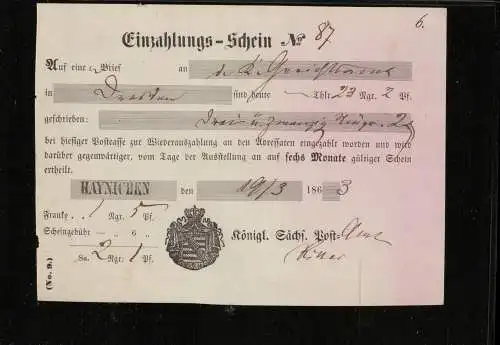 6.
Einzahlungs-Schein № 87
Auf eine Brief an d. K.
in Dresden sind heute — Thlr. 23 Ngr. 2 Pf.
geschrieben: Drei u. zwanzig Ngr. 2
bei hiesiger Postcasse zur Wiederauszahlung an den Adressaten eingezahlt worden und wird
darüber gegenwärtiger, vom Tage der Ausstellung an auf sechs Monate gültiger Schein
ertheilt.
HAYNICHEN den 19/3 1863
Franko 1 Ngr. 5 Pf.
Scheingebühr — „ 6 „
Sa. 2 Ngr. 1 Pf.
Königl. Sächs. Post-Amt
(No. 9.)